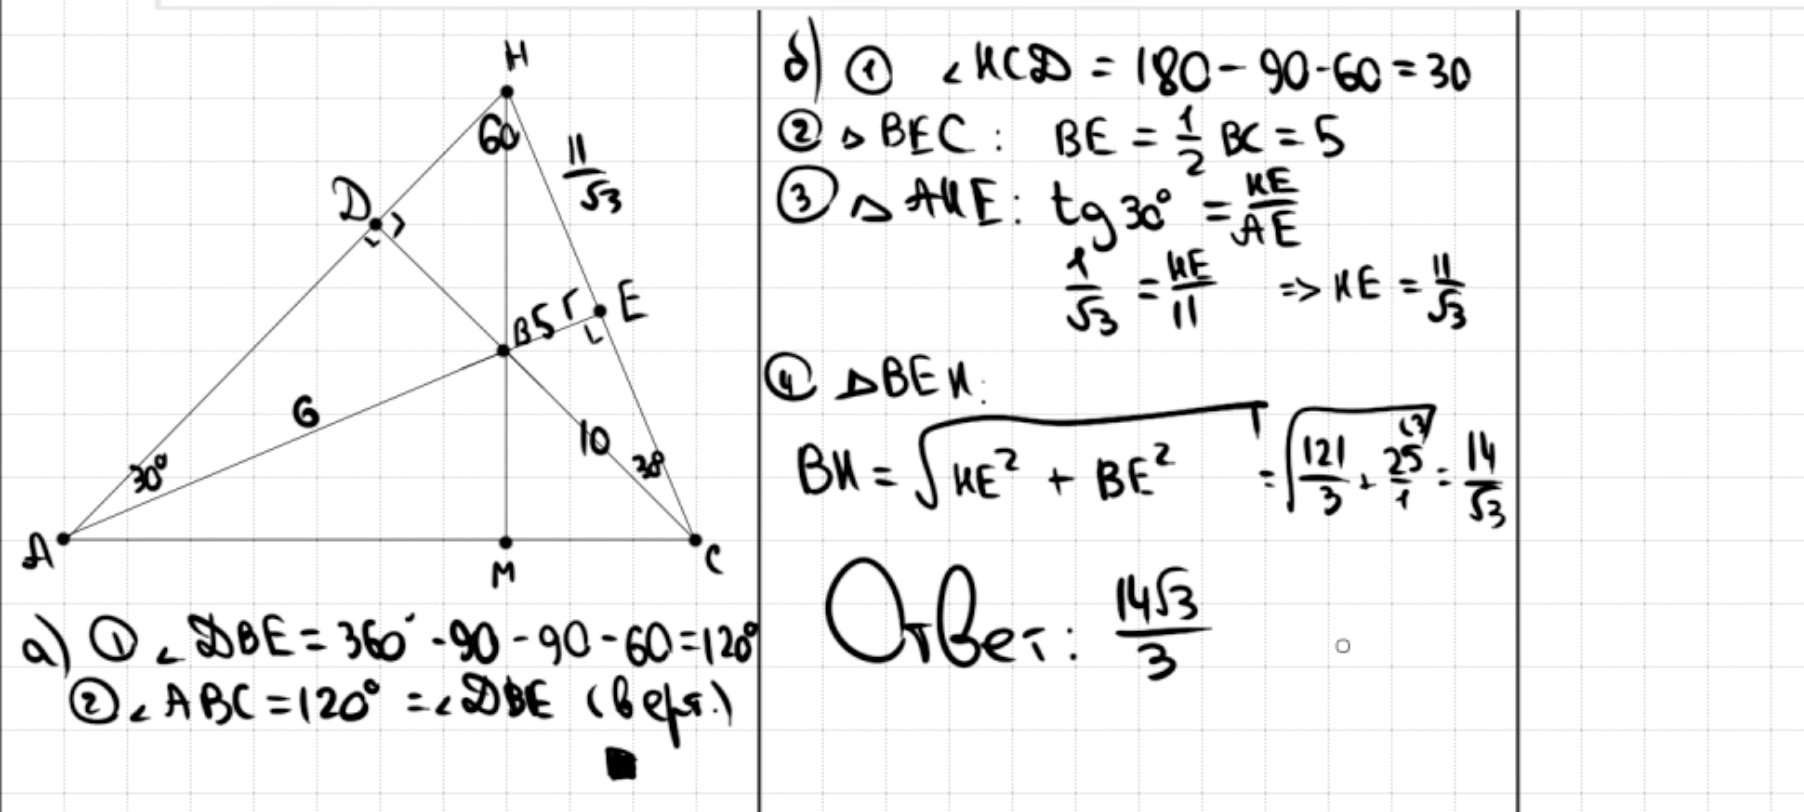 H
60
11/√3
D
B 5
E
6
10
30°
30
A
M
C
а) ① ∠DBE = 360° - 90 - 90 - 60 = 120°
② ∠ABC = 120° = ∠DBE (верт.)
б) ① ∠HCD = 180 - 90 - 60 = 30
② △BEC: BE = 1/2 BC = 5
③ △AHE: tg 30° = HE/AE
1/√3 = HE/11 => HE = 11/√3
④ △BEH:
BH = √(HE² + BE²) = √(121/3 + 25/1 (3)) = 14/√3
Ответ: 14√3/3